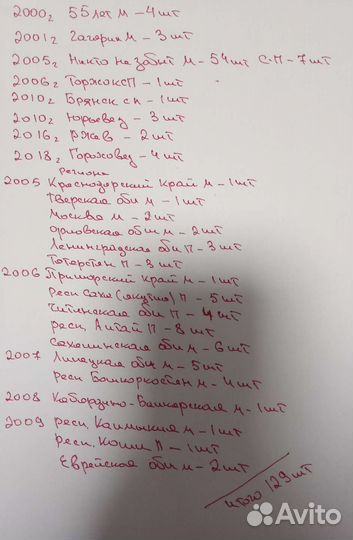 2000г 55 лет М - 4 шт
2001г Гагарин М - 3 шт
2005г Никто не забыт М - 54 шт С.П - 7 шт
2006г Торжок СП - 1 шт
2010г Брянск СП - 1 шт
2010г Юрьевец - 3 шт
2016г Ржев - 2 шт
2018г Гороховец - 4 шт
Регионы
2005 Краснодарский Край М - 1 шт
Тверская обл М - 1 шт
Москва М - 2 шт
Орловская обл М - 2 шт
Ленинградская обл П - 3 шт
Татарстан П - 3 шт
2006 Приморский край М - 1 шт
Респ Саха (Якутия) П - 5 шт
Читинская обл П - 4 шт
респ. Алтай П - 8 шт
Сахалинская обл М - 6 шт
2007 Липецкая обл М - 5 шт
респ Башкоркостан М - 4 шт
2008 Кабардино-Балкарская М - 1 шт
2009 респ. Калмыкия М - 1 шт
Респ. Коми П - 1 шт
Еврейская обл М - 2 шт
итого 129 шт
Avito